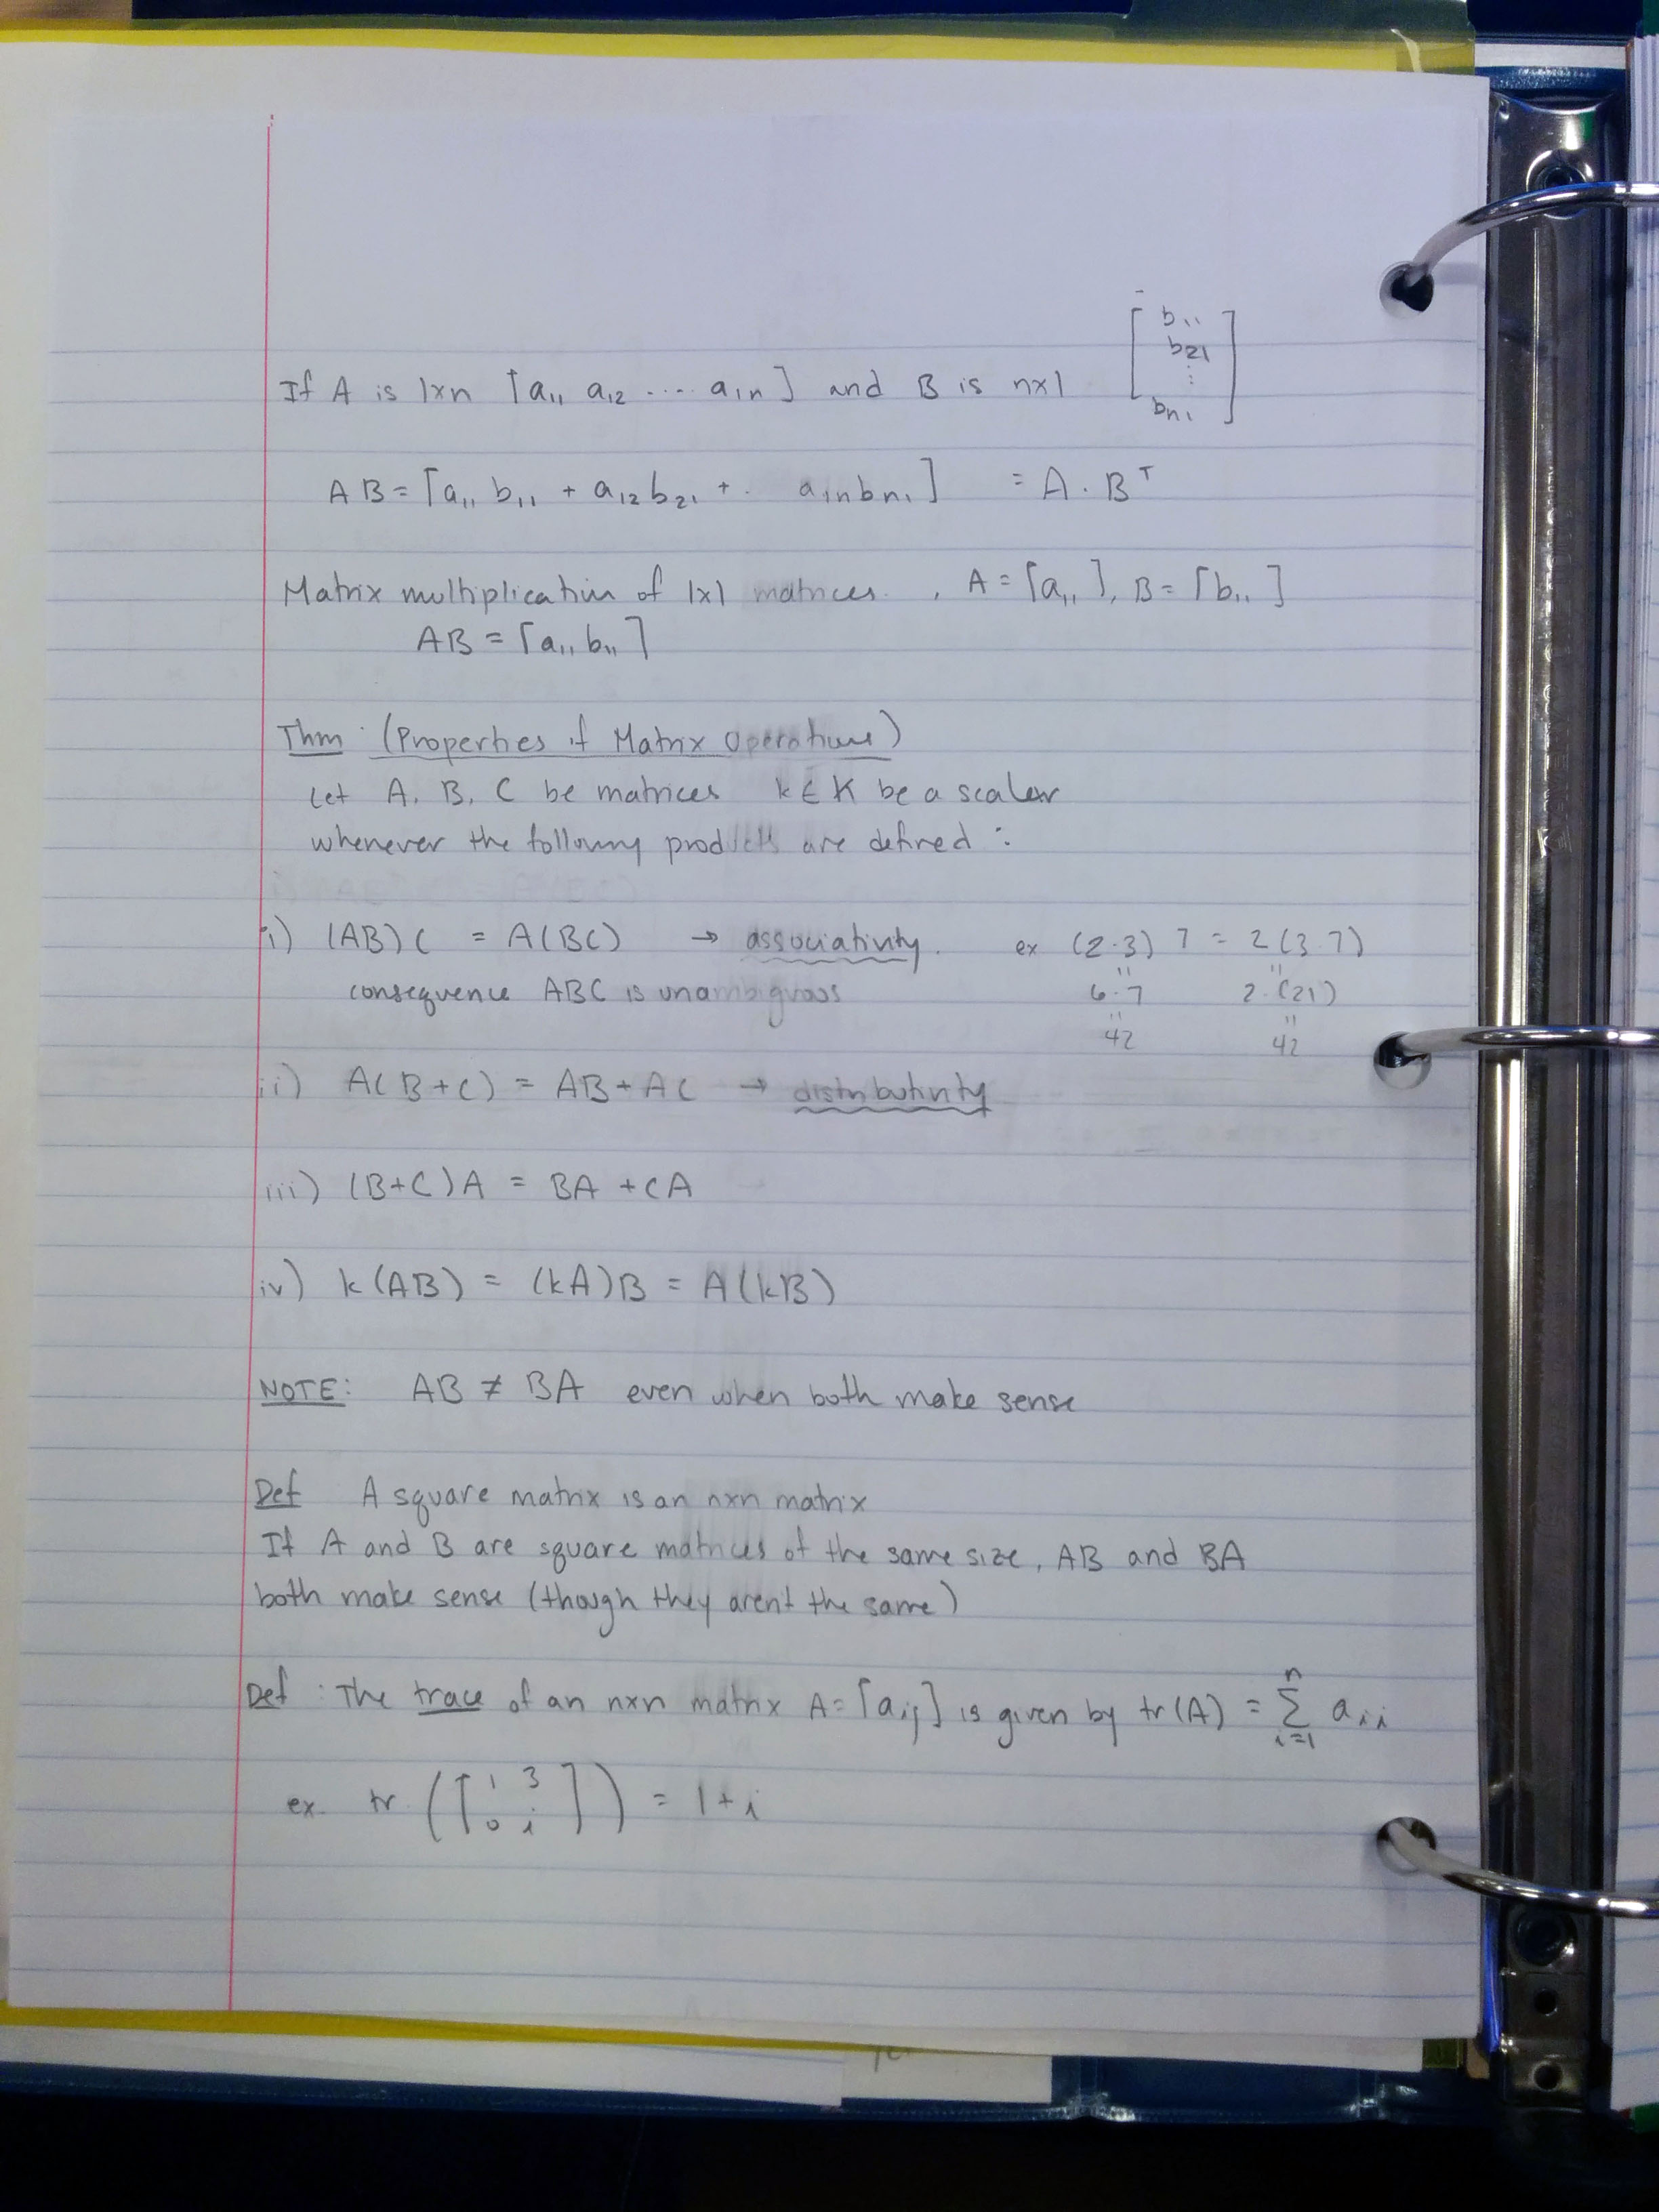 If A is 1×n [a11 a12 .... a1n] and B is n×1 [b11 b21 ⋮ bn1]
AB = [a11 b11 + a12 b21 + . a1n bn1] = A · Bᵀ
Matrix multiplication of 1×1 matrices. , A = [a11], B = [b11]
AB = [a11 b11]
Thm : (Properties of Matrix Operations)
Let A, B, C be matrices k ∈ K be a scalar
whenever the following products are defined :
i) (AB)C = A(BC) → associativity. ex (2·3) 7 = 2(3·7)
consequence ABC is unambiguous 6·7 2·(21)
42 42
ii) A(B+C) = AB + AC → distributivity
iii) (B+C)A = BA + CA
iv) k(AB) = (kA)B = A(kB)
NOTE: AB ≠ BA even when both make sense
Def A square matrix is an n×n matrix
If A and B are square matrices of the same size, AB and BA
both make sense (though they aren't the same)
Def : The trace of an n×n matrix A = [aij] is given by tr(A) = ∑ⁿᵢ₌₁ aii
ex. tr ([1 3 0 i]) = 1 + i